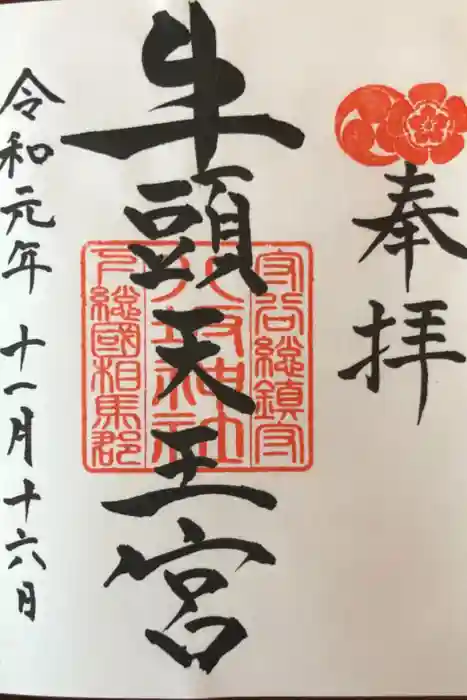 奉拝
牛頭天王宮
守谷総鎮守
八坂神社
下総國相馬郡
令和元年十一月十六日